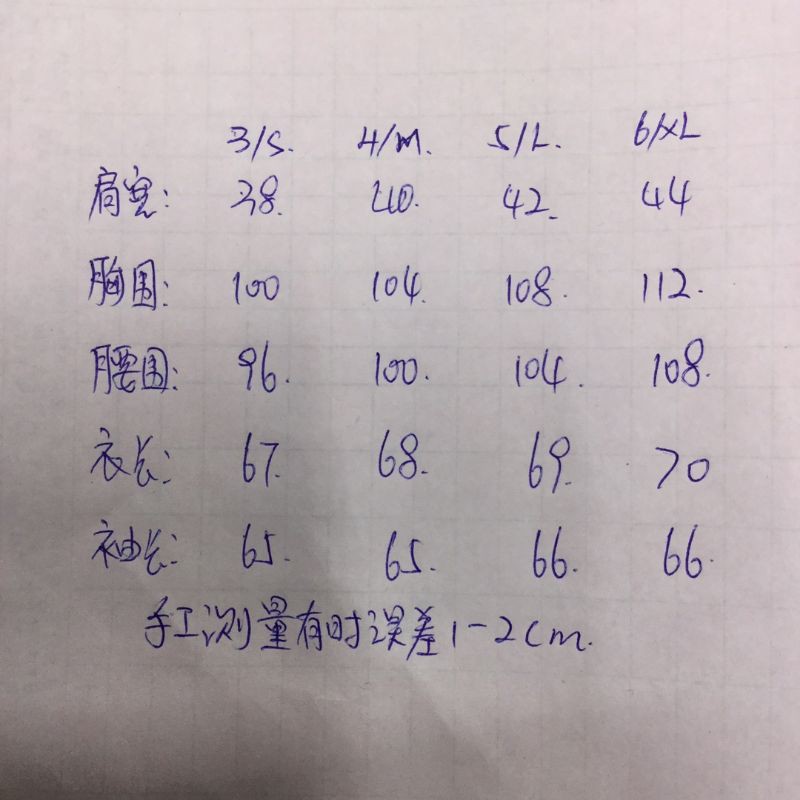 3/S. 4/M. 5/L. 6/XL
肩宽: 38. 40. 42. 44
胸围: 100 104. 108. 112.
腰围: 96. 100. 104. 108.
衣长: 67. 68. 69. 70
袖长: 65. 65. 66. 66.
手工测量有时误差1-2cm.